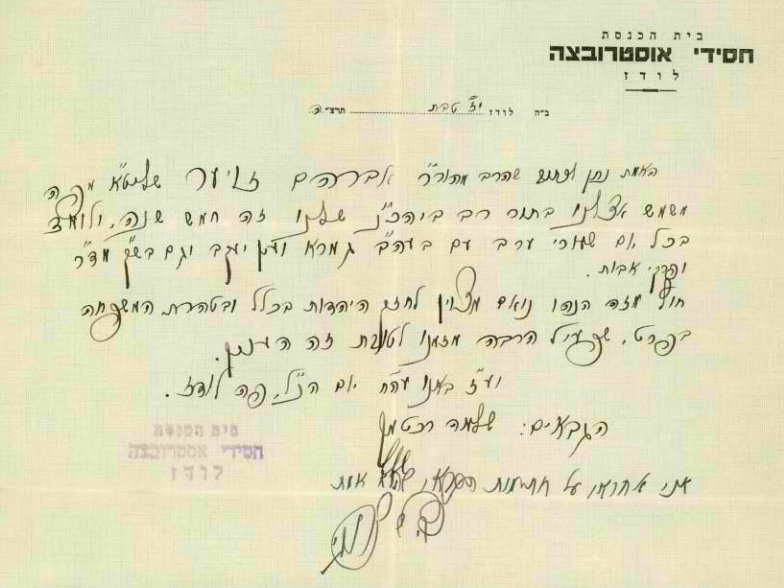 בית הכנסת
חסידי אוסטרובצה
לודז
ב"ה לודז י"ז טבת תרצ"
האמת נתן שהרב מהור"ר אברהם זליער שליט"א מפה
משמש אצלנו בתור רב ביהכ"נ שלנו זה חמש שנה, ולומד
בכל יום שעורי ערב עם בעה"ב גמרא ועין יעקב וגם בש"ק מד"ר
ופרקי אבות.
חוץ מזה הנהו נואם מצוין לחזק היהדות בכלל ובטהרת המשפחה
בפרט, שפעיל הרבה מזמנו לטובת זה הענין.
ועז באנו עה"ח יום הנ"ל, פה לודז.
הגבאים: שלמה רכטמן
אני אחראי על חתימות הגבאי שהוא אמת
בית הכנסת
חסידי אוסטרובצה
לודז